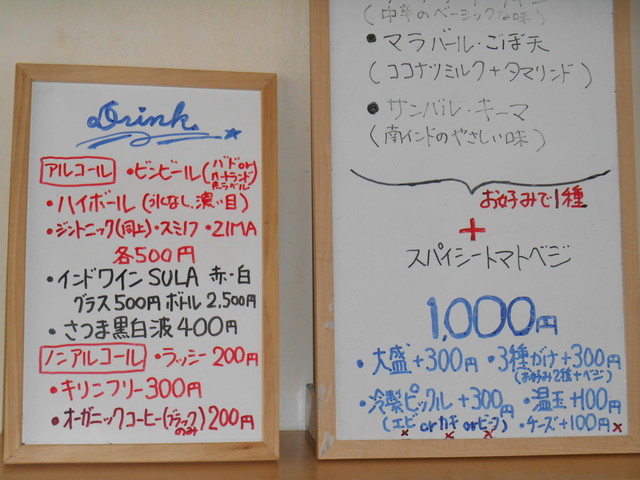 Drink.
アルコール ・ビンビール(バドor ハートランド or 赤ラベル)
・ハイボール(氷なし、濃い目)
・ジントニック(同上)・スミノフ・ZIMA
各500円
・インドワインSULA 赤・白
グラス500円 ボトル2,500円
・さつま黒白波400円
ノンアルコール ・ラッシー200円
・キリンフリー300円
・オーガニックコーヒー(ブラックのみ)200円
(中辛のベーシックな味)
・マラバール・ごぼ天
(ココナツミルク+タマリンド)
・サンバル・キーマ
(南インドのやさしい味)
お好みで1種
+
スパイシートマトベジ
1,000円
・大盛+300円 ・3種がけ+300円
(お好み2種+ベジ)
・冷製ピックル+300円 ・温玉+100円
(エビorカキorビーフ) ・チーズ+100円×
× × ×